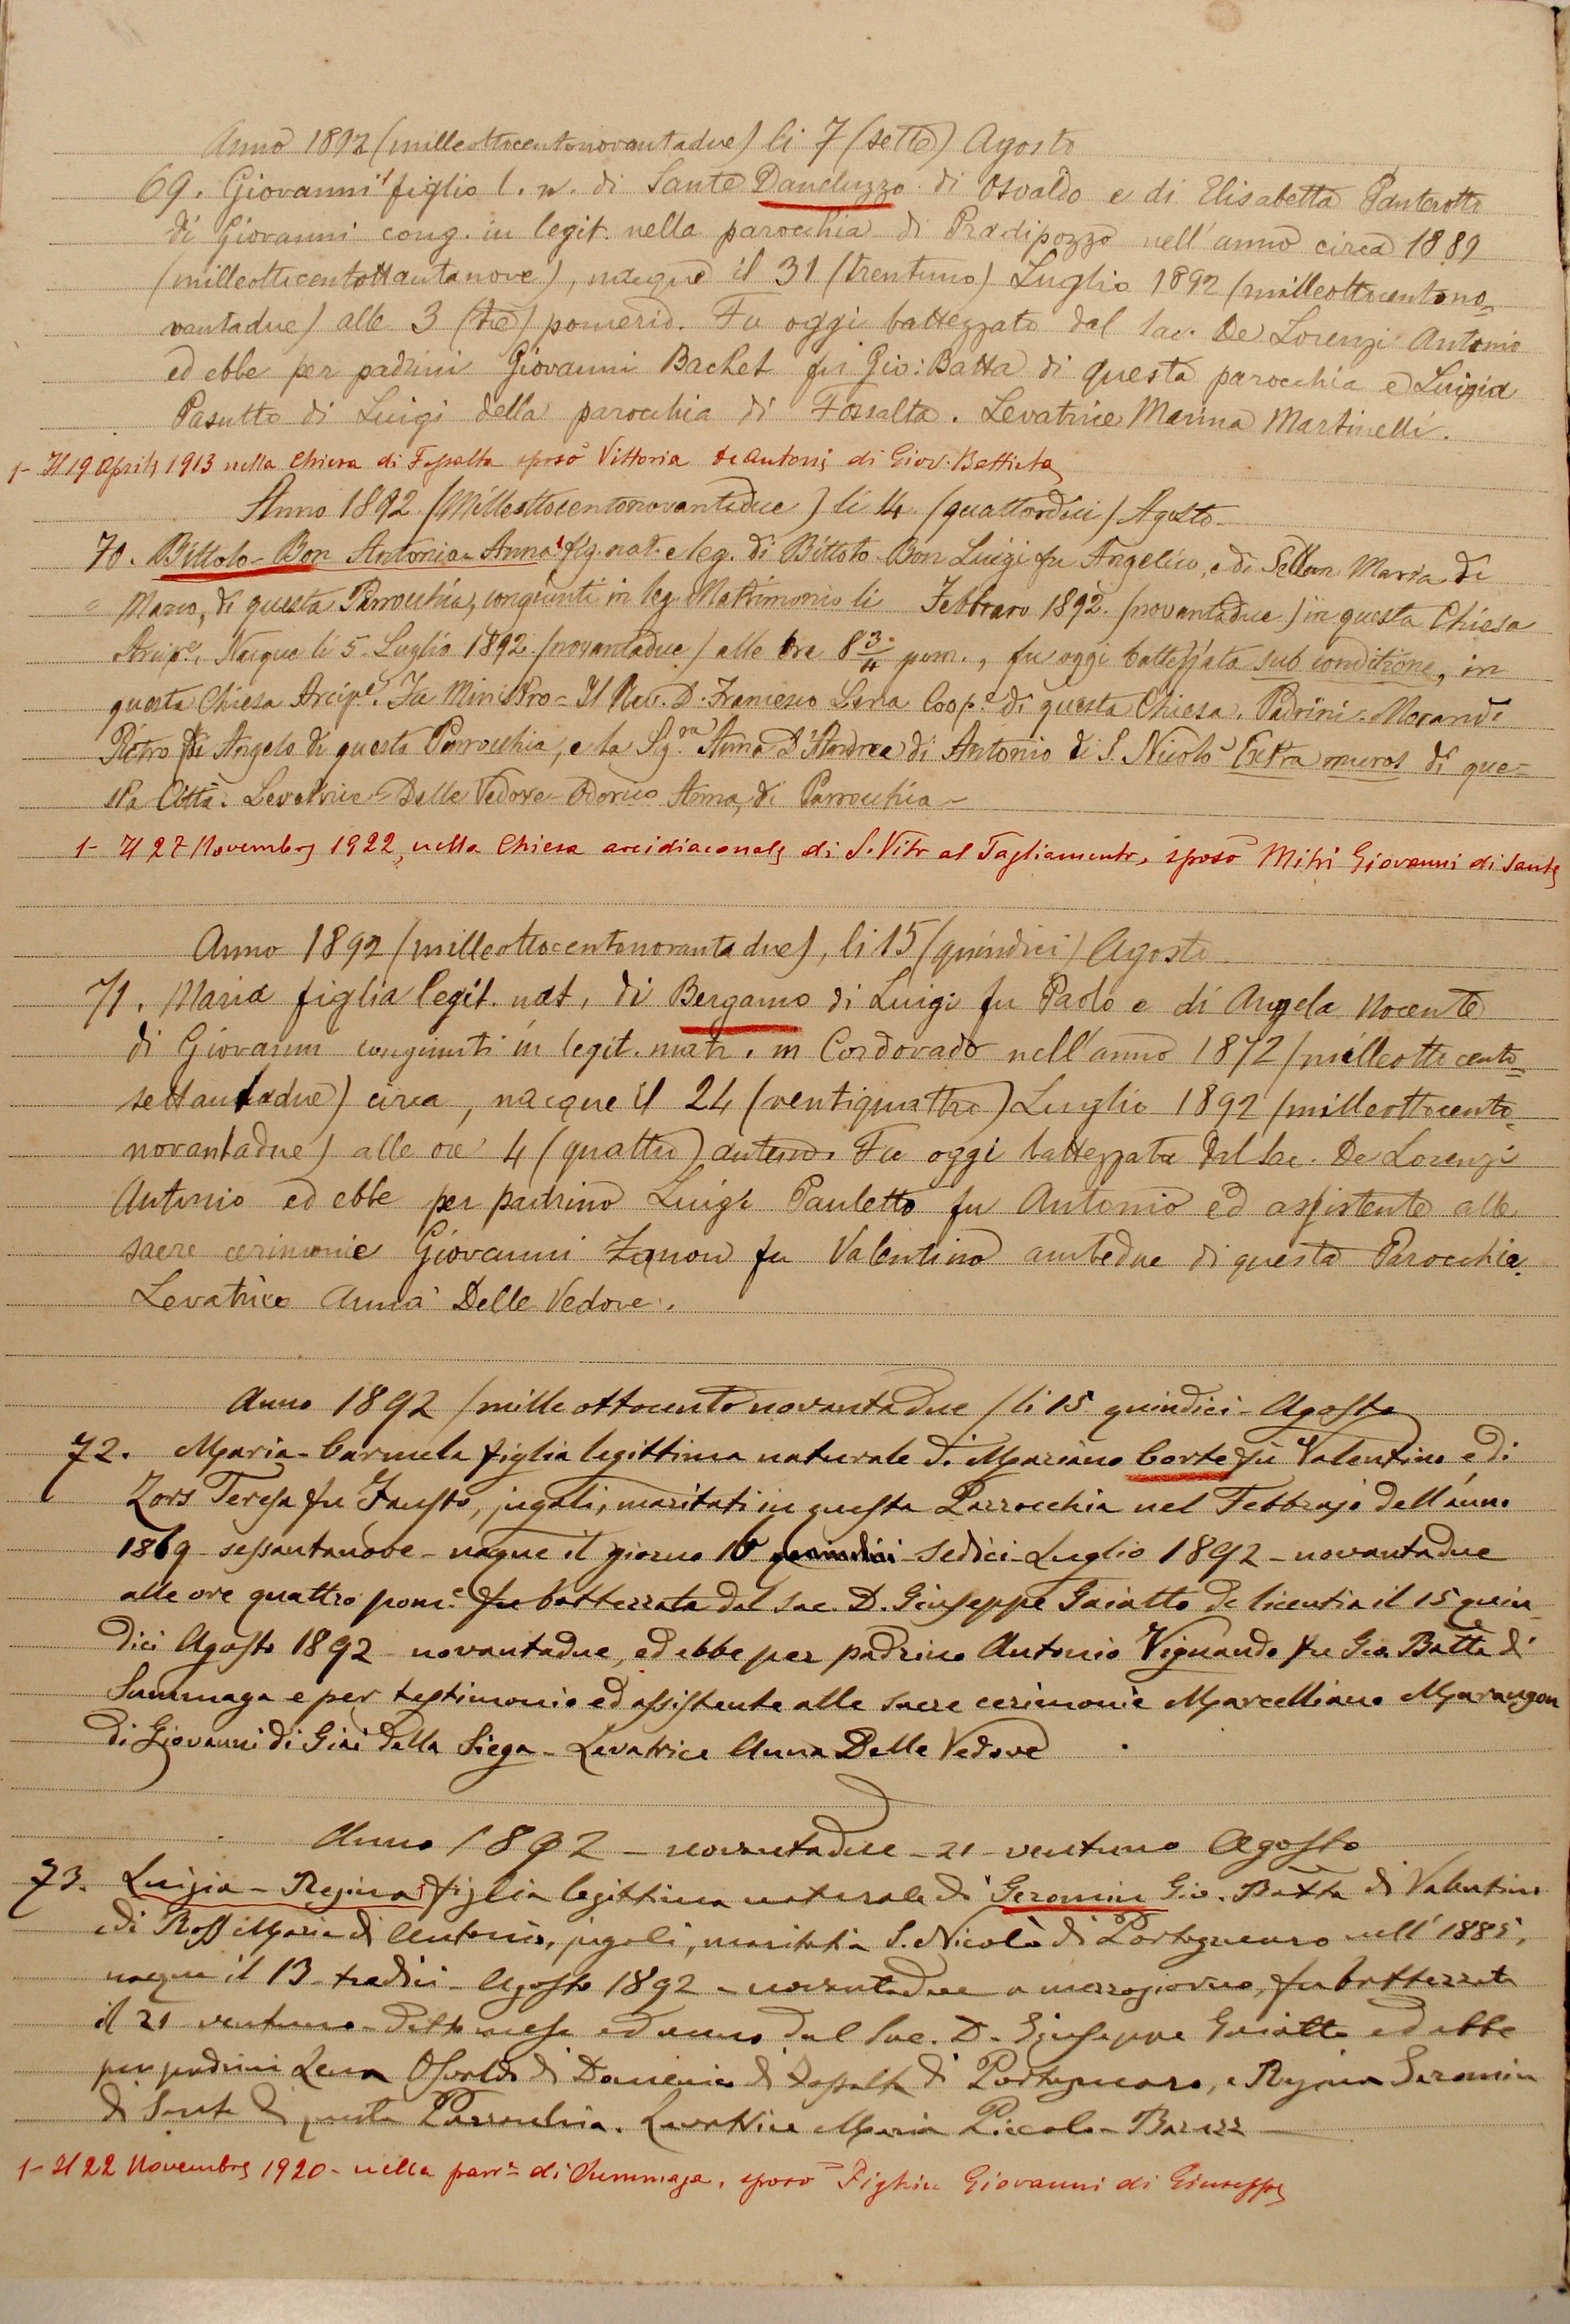 Anno 1892 (milleottocentonovantadue) li 7 (sette) Agosto
69. Giovanni figlio l. n. di Sante Daneluzzo di Osvaldo e di Elisabetta Panterotto
di Giovanni cong. in legit. nella parocchia di Pradipozzo nell'anno circa 1889
(milleottocentottantanove), nacque il 31 (trentuno) Luglio 1892 (milleottocentono=
vantadue) alle 3 (tre) pomerid. Fu oggi battezzato dal Sac. De Lorenzi Antonio
ed ebbe per padrini Giovanni Bachet fu Gio: Batta di questa parocchia e Luigia
Pasutto di Luigi della parocchia di Fossalta. Levatrice Marina Martinelli.
1- Il 19 Aprile 1913 nella Chiesa di Fossalta sposò Vittoria de Antoni di Giov. Battista
Anno 1892 (Milleottocentonovantadue) li 14 (quattordici) Agosto
70. Bittolo-Bon Antonia-Anna fig. nat. e leg. di Bittolo-Bon Luigi fu Angelico, e di Sellan Maria di
Marco, di questa Parrocchia, congiunti in leg. Matrimonio li Febbraro 1892 (novantadue) in questa Chiesa
Arcip.e, Nacque li 5 Luglio 1892 (novantadue) alle ore 8 3/4 pom., fu oggi battezzata sub conditione, in
questa Chiesa Arcip.e. Fu Ministro = Il Rev. D. Francesco Lena Coop.e di questa Chiesa. Padrini: Morandi
Pietro di Angelo di questa Parrocchia, e la Sg.ra Anna D'Andrea di Antonio di S. Nicolò Extra muros di que=
sta Città. Levatrice Delle Vedove Odorico Anna, di Parrocchia
1- Il 27 Novembre 1922, nella Chiesa arcidiaconale di S. Vito al Tagliamento, sposò Mitri Giovanni di Sante
Anno 1892 (milleottocentonovantadue), li 15 (quindici) Agosto
71. Maria figlia legit. nat. di Bergamo di Luigi fu Paolo e di Angela Nocente
di Giovanni congiunti in legit. matr. in Cordovado nell'anno 1872 (milleottocento=
settantadue) circa, nacque il 24 (ventiquattro) Luglio 1892 (milleottocento=
novantadue) alle ore 4 (quattro) antimd. Fu oggi battezzata dal Sac. De Lorenzi
Antonio ed ebbe per padrino Luigi Pauletto fu Antonio ed assistente alle
sacre cerimonie Giovanni Zanon fu Valentino ambedue di questa Parocchia.
Levatrice Anna Delle Vedove.
Anno 1892 (milleottocentonovantadue) li 15 quindici - Agosto
72. Maria-Carmela figlia legittima naturale di Marziano Corte fu Valentino e di
Zors Teresa fu Fausto, jugali, maritati in questa Parrocchia nel Febbrajo dell'anno
1869 sessantanove - nacque il giorno 16 quindici - sedici Luglio 1892 - novantadue
alle ore quattro pom.e fu battezzata dal Sac. D. Giuseppe Gaiatto de licentia il 15 quin
dici Agosto 1892 novantadue, ed ebbe per padrino Antonio Vignando fu Gio. Batta di
Summaga e per testimonio ed assistente alle sacre cerimonie Marcelliano Marangon
di Giovanni di Giai della Siega - Levatrice Anna Delle Vedove
Anno 1892 - novantadue - 21 - ventuno Agosto
73. Luigia - Regina figlia legittima naturale di Geromin Gio. Batta di Valentino
e di Rossi Maria di Antonio, jugali, maritati a S. Nicolò di Portogruaro nell' 1885,
nacque il 13 - tredici - Agosto 1892 - novantadue a mezzogiorno, fu battezzata
il 21 ventuno - detto mese ed anno dal Sac. D. Giuseppe Gaiatto ed ebbe
per padrini Lena Osvaldo di Domenico di Fossalta di Portogruaro, e Regina Geromin
di Sante di questa Parrocchia. Levatrice Maria Piccolo-
1- Il 22 Novembre 1920 - nella parr.a di Summaga, sposò Fighin Giovanni di Giuseppe